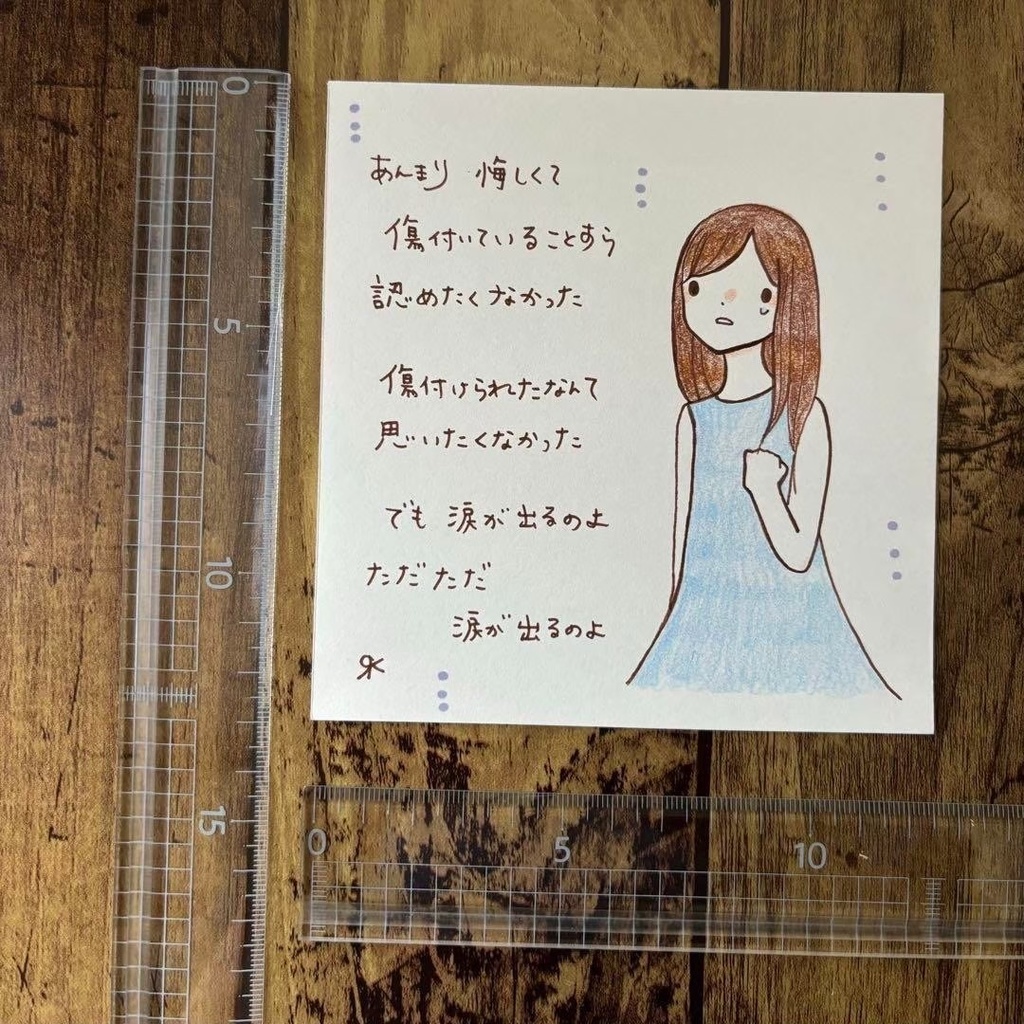 あんまり 悔しくて
傷付いていることすら
認めたくなかった
傷付けられたなんて
思いたくなかった
でも 涙が出るのよ
ただただ
涙が出るのよ
0
5
10
15
0 5 10